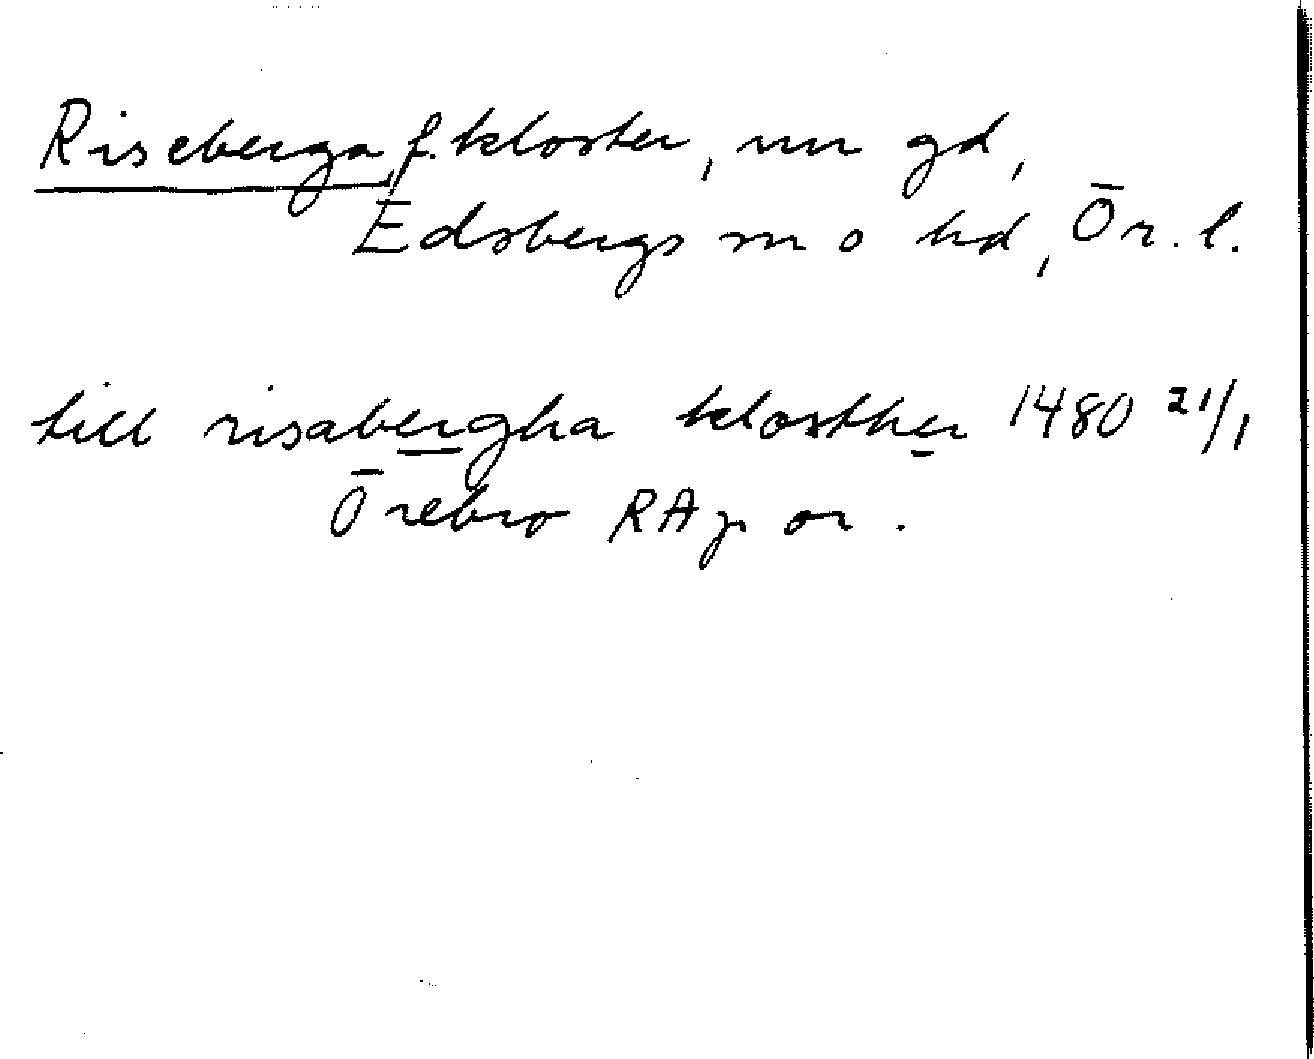 Riseberga, f. kloster, nu gd,
Edsbergs sn o hd, Ör. l.
till risabergha klosther 1480 21/1
Örebro RAp or.